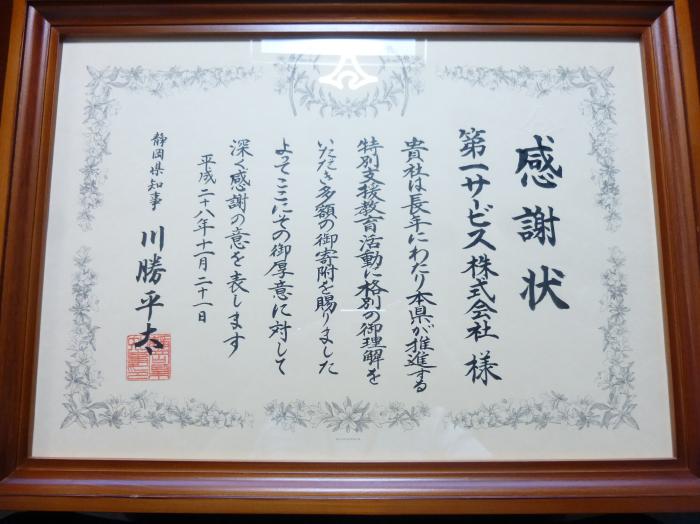 感謝状
第一サービス株式会社 様
貴社は長年にわたり本県が推進する
特別支援教育活動に格別の御理解を
いただき多額の御寄附を賜りました
よってここにその御厚意に対して
深く感謝の意を表します
平成二十八年十二月二十一日
静岡県知事 川勝平太